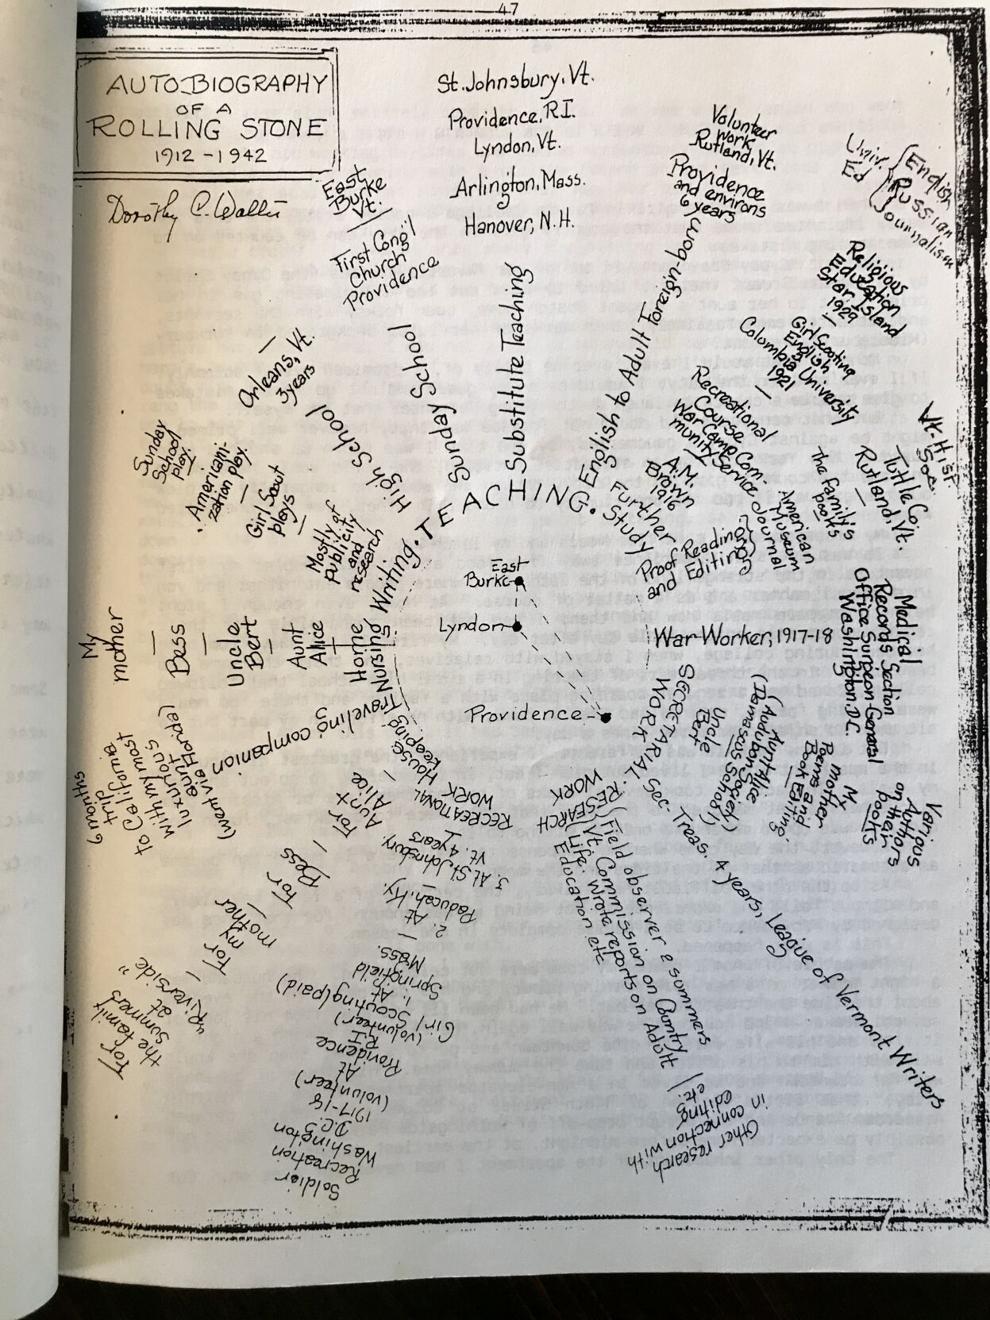 47
AUTOBIOGRAPHY
OF A
ROLLING STONE
1912-1942
Dorothy C. Walter
St. Johnsbury, Vt.
Providence, R.I.
Lyndon, Vt.
Arlington, Mass.
Hanover, N.H.
Substitute Teaching
East
Burke
Vt.
First Cong'l
Church
Providence
Sunday School
Orleans, Vt.
3 years
High School
TEACHING.
Volunteer
Work
Rutland, Vt.
Providence
and environs
6 years
English to Adult Foreign-born
Univ.
Ed
English
Russian
Journalism
Religious
Education
Star Island
1925
Girl Scouting
English
Columbia University
1921
Recreational
Course
War Camp Com-
munity Service
A.M.
Brown
1916
Further
Study
Sunday
School
play.
Americani-
zation play.
Girl Scout
plays
Mostly of
publicity
and
research
Writing.
Vt. Hist
Soc.
Tuttle Co.
Rutland, Vt.
The family's
books
American
Museum
Journal
Proof Reading
and Editing
East
Burke
Lyndon
Providence
War Worker, 1917-18
Medical
Records Section
Office Surgeon-General
Washington
D.C.
My
mother
Bess
Uncle
Bert
Aunt
Alice
Home
Nursing
Traveling companion
(went via Florida)
6 months
trip
to California
with my most
luxurious
aunt
House
keeping
For
Aunt
Alice
For
Bess
For
my
mother
For
the family
summers
at
"Riverside"
SECRETARIAL
WORK
Uncle
Bert
(Aunt Alice
(Audubon Society)
(Damascus School)
My mother
Poems and
Book Editing
Various
Authors
on their
books
Sec. Treas. 4 years, League of Vermont Writers
RECREATIONAL
WORK
3. At St Johnsbury
Vt. 4 years
2. At
Paducah, Ky
1. At
Springfield
Mass.
Girl Scouting (paid)
(volunteer)
At
Providence
R.I.
Soldier
Recreation
Washington
D.C.
1917-18
(volunteer)
RESEARCH
WORK
Field observer 2 summers
Vt. Commission on Country
Life. Wrote reports on Adult
Education, etc
Other research
in connection with
editing
etc.